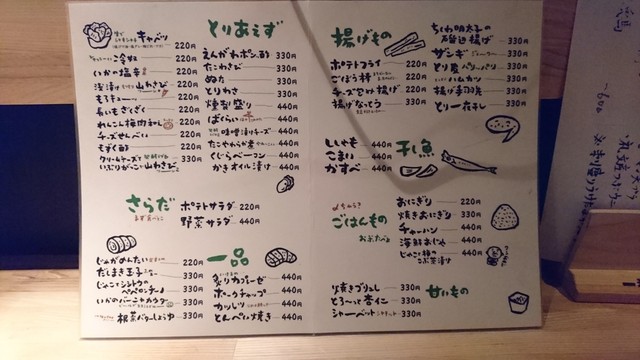 とりあえず
キャベツ 220円
冷奴 220円
いか塩辛 220円
浅漬け 山わさび 220円
もろキュー 220円
長いもざくざく 220円
れんこん梅肉和え 220円
チーズせんべい 220円
もずく酢 220円
クリームチーズ
いぶりがっこ 山わさび 220円
えんがわポン酢 330円
たこわさび 330円
ぬた 330円
とりわさ 330円
燻製盛り 440円
ばくらい 440円
味噌漬けチーズ 440円
たこやわらか煮 440円
くじらベーコン 440円
かきオイル漬け 440円
さらだ
ポテトサラダ 220円
野菜サラダ 440円
一品
じゃがめんたい 220円
だしまき玉子 330円
じゃこシシトウの
ペペロンチーノ 330円
いかのバーニャカウダ 330円
根菜バターしょうゆ 330円
炙りガーゼ 440円
ポークチャップ 440円
カツレツ 440円
とんぺい焼き 440円
揚げもの
ポテトフライ 220円
ごぼう棒 220円
チーズ包み揚げ 220円
揚げなっとう 330円
ちくわ明太子の
磯辺揚げ 330円
ザンギ 330円
とり屋 パリパリ 330円
ハムカツ 330円
揚げ手羽先 330円
とり一夜干し 330円
干し魚
ししゃも 440円
こまい 440円
かすべ 440円
ごはんもの
おにぎり 330円
焼きおにぎり 330円
チャーハン 440円
海鮮おじや 440円
じゃこ梅の
こぶ茶漬け 440円
甘いもの
焼きブリュレ 330円
とろ〜っと杏仁 330円
シャーベット 330円